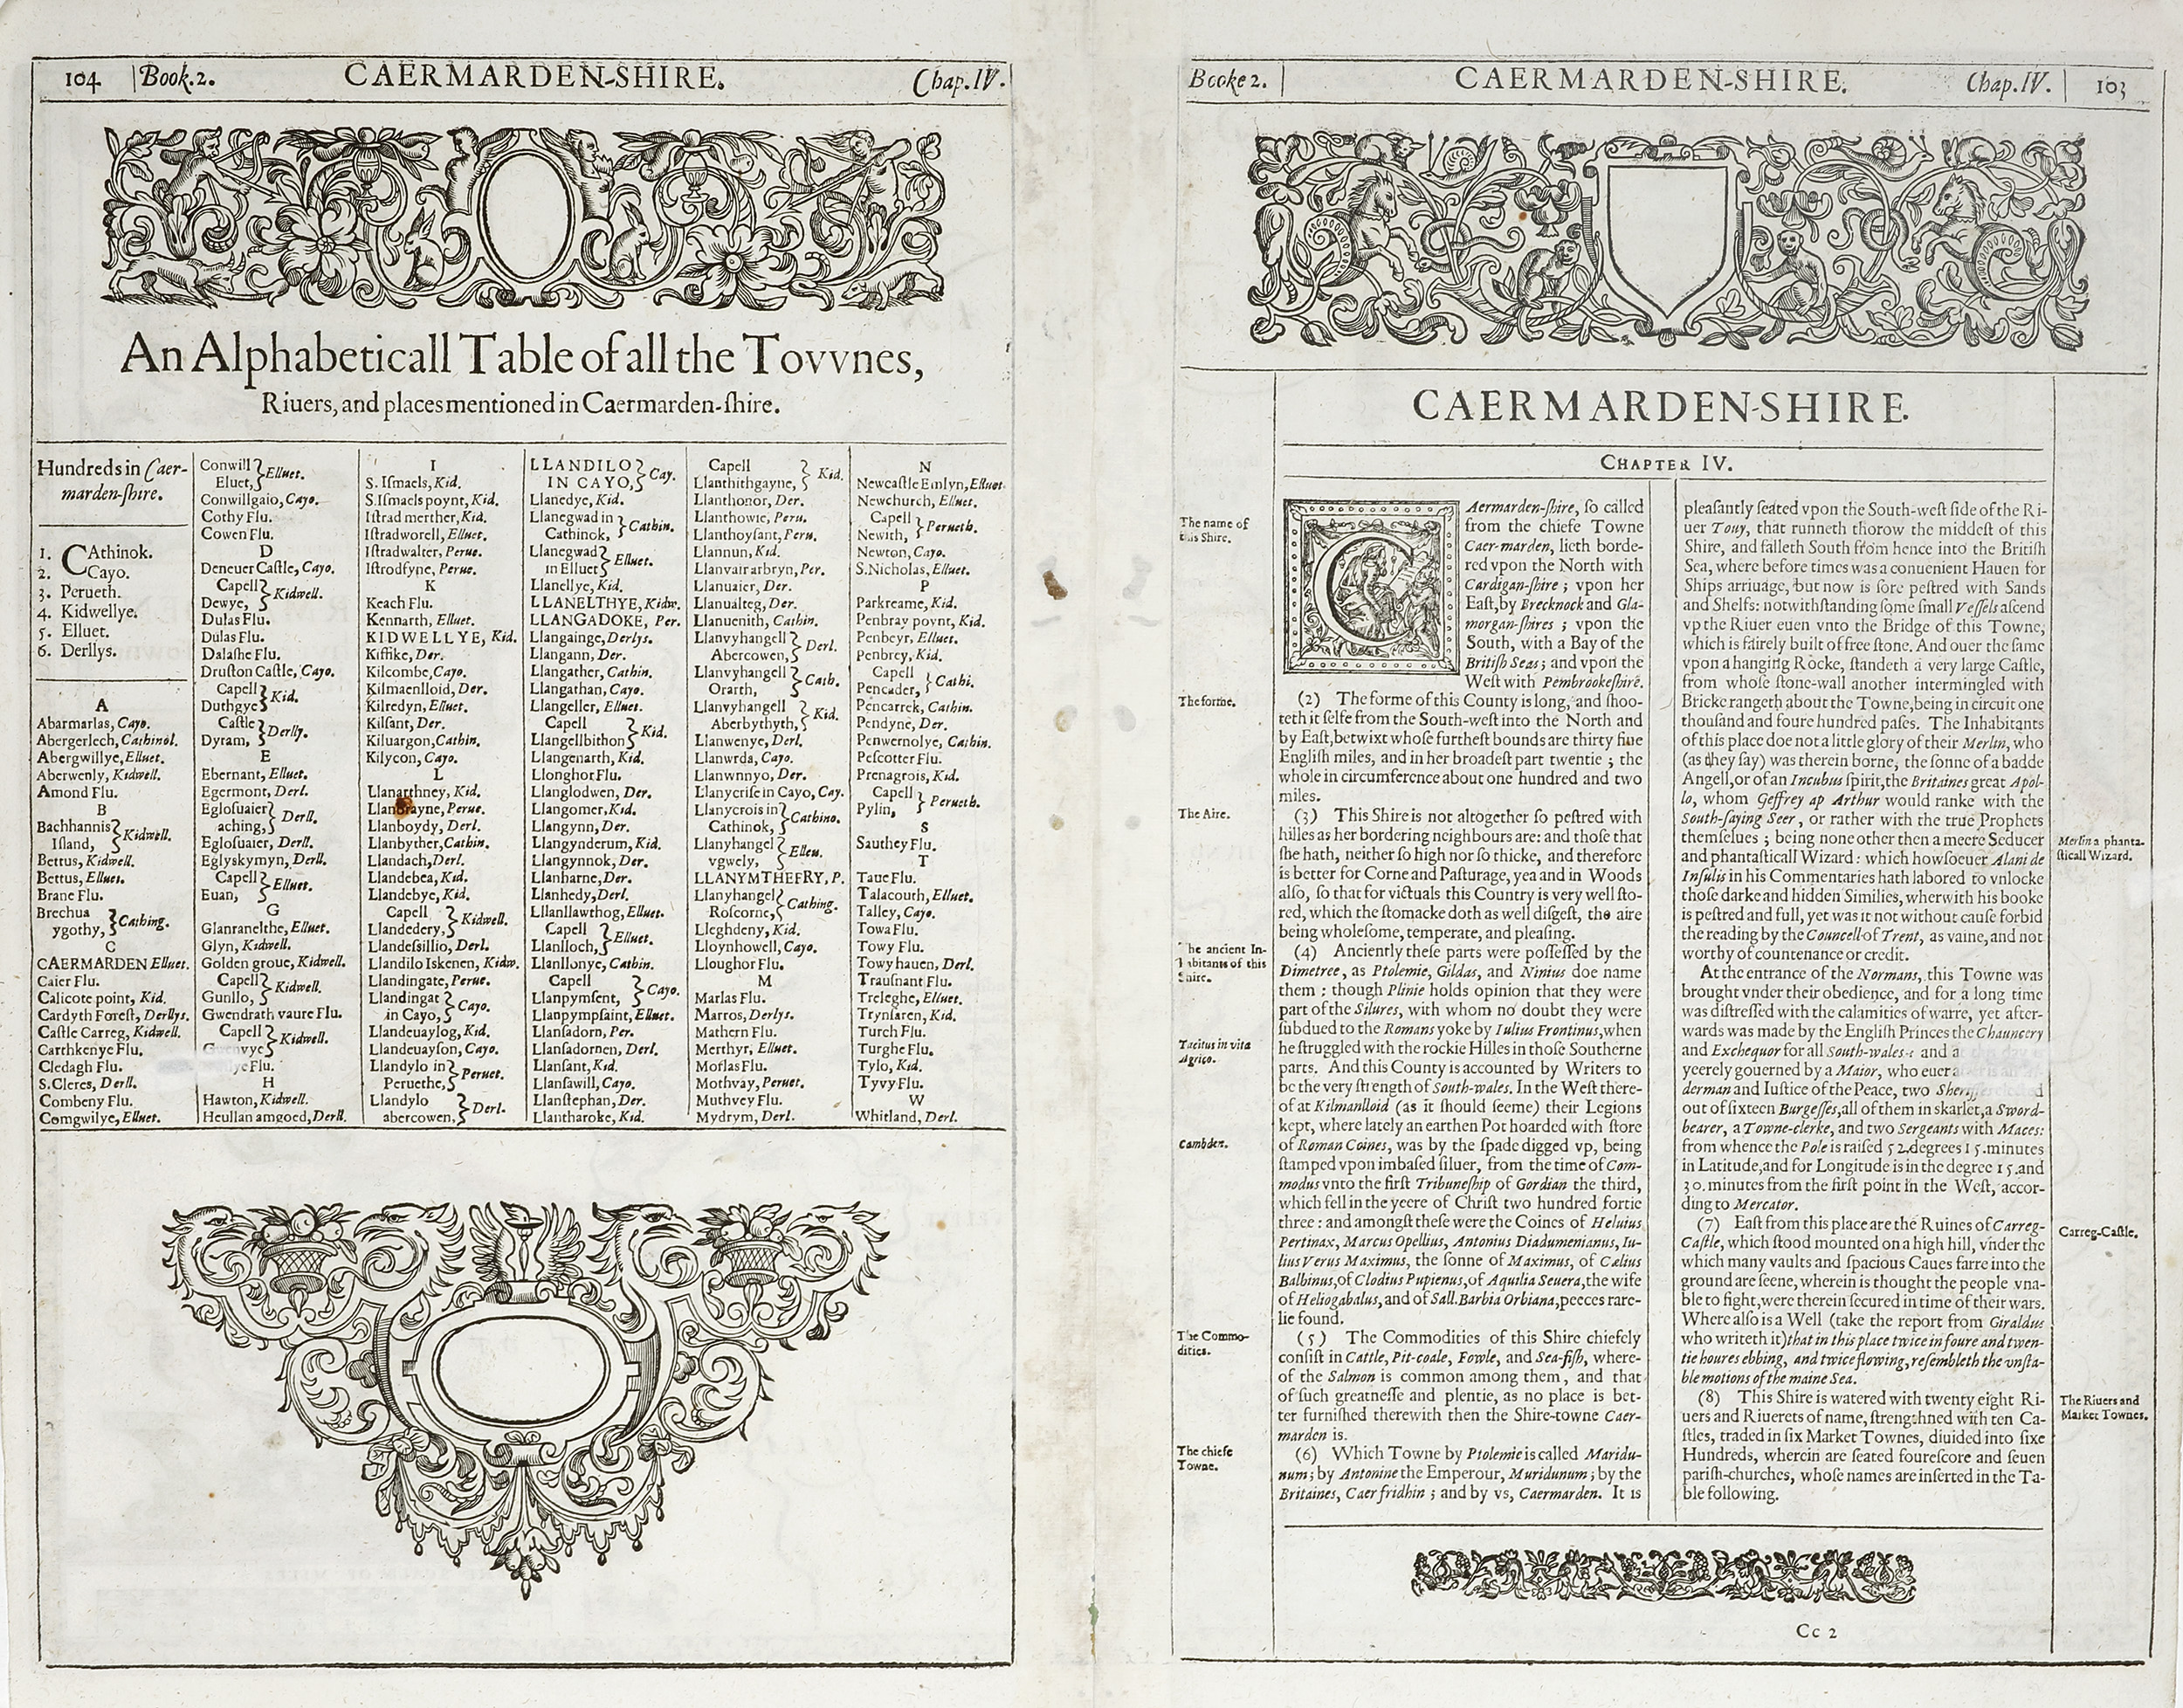 104 Book.2. CAERMARDEN-SHIRE. Chap.IV.
An Alphabeticall Table of all the Tovvnes,
Riuers, and places mentioned in Caermarden-shire.
Hundreds in Caer-
marden-shire.
1. CAthinok.
2. Cayo.
3. Perueth.
4. Kidwellye.
5. Elluet.
6. Derllys.
A
Abarmarlas, Cayo.
Abergerlech, Cathinok.
Abergwillye, Elluet.
Aberwenly, Kidwell.
Amond Flu.
B
Bachhannis
Island, } Kidwell.
Bettus, Kidwell.
Bettus, Elluet.
Brane Flu.
Brechua
ygothy, } Cathing.
C
CAERMARDEN Elluet.
Caier Flu.
Calicote point, Kid.
Cardyth Forest, Derllys.
Castle Carreg, Kidwell.
Carthkenye Flu.
Cledagh Flu.
S.Cleres, Derll.
Combeny Flu.
Comgwilye, Elluet.
Conwill
Eluet, } Elluet.
Conwillgaio, Cayo.
Cothy Flu.
Cowen Flu.
D
Deneuer Castle, Cayo.
Capell
Dewye, } Kidwell.
Dulas Flu.
Dulas Flu.
Dalashe Flu.
Druston Castle, Cayo.
Capell
Duthgye } Kid.
Castle
Dyram, } Derlly.
E
Ebernant, Elluet.
Egermont, Derl.
Eglosuaier
aching, } Derll.
Eglosuaier, Derll.
Eglyskymyn, Derll.
Capell
Euan, } Elluet.
G
Glanranelthe, Elluet.
Glyn, Kidwell.
Golden groue, Kidwell.
Capell
Gunllo, } Kidwell.
Gwendrath vaure Flu.
Capell
Gwenvye } Kidwell.
ye Flu.
H
Hawton, Kidwell.
Heullan amgoed, Derll.
I
S. Ismaels, Kid.
S.Ismaels poynt, Kid.
Istrad merther, Kid.
Istradworell, Elluet.
Istradwalter, Perue.
Istrodsyne, Perue.
K
Keach Flu.
Kennarth, Elluet.
KIDWELLYE, Kid.
Kiffike, Der.
Kilcombe, Cayo.
Kilmaenlloid, Der.
Kilredyn, Elluet.
Kilsant, Der.
Kiluargon, Cathin.
Kilycon, Cayo.
L
Llanarthney, Kid.
Llanbrayne, Perue.
Llanboydy, Derl.
Llanbyther, Cathin.
Llandach, Derl.
Llandebea, Kid.
Llandebye, Kid.
Capell
Llandedery, } Kidwell.
Llandessillio, Derl.
Llandilo Iskenen, Kidw.
Llandingate, Perue.
Llandingat
in Cayo, } Cayo.
Llandeuaylog, Kid.
Llandeuayson, Cayo.
Llandylo in
Peruethe, } Peruet.
Llandylo
abercowen, } Derl.
LLANDILO
IN CAYO, } Cay.
Llanedye, Kid.
Llanegwad in
Cathinok, } Cathin.
Llanegwad
in Elluet } Elluet.
Llanellye, Kid.
LLANELTHYE, Kidw.
LLANGADOKE, Per.
Llangainge, Derlys.
Llangann, Der.
Llangather, Cathin.
Llangathan, Cayo.
Llangeller, Elluet.
Capell
Llangellbithon } Kid.
Llangenarth, Kid.
Llonghor Flu.
Llanglodwen, Der.
Llangomer, Kid.
Llangynn, Der.
Llangynderum, Kid.
Llangynnok, Der.
Llanharne, Der.
Llanhedy, Derl.
Lllanllawthog, Elluet.
Capell
Llanlloch, } Elluet.
Llanllonye, Cathin.
Capell
Llanpymsent, } Cayo.
Llanpympsaint, Elluet.
Llansadorn, Per.
Llansadornen, Derl.
Llansant, Kid.
Llansawill, Cayo.
Llanstephan, Der.
Llantharoke, Kid.
Capell
Llanthithgayne, } Kid.
Llanthonor, Der.
Llanthowie, Peru.
Llanthoysant, Peru.
Llannun, Kid.
Llanvair arbryn, Per.
Llanuaier, Der.
Llanualteg, Der.
Llanuenith, Cathin.
Llanvyhangell
Abercowen, } Derl.
Llanvyhangell
Orarth, } Cath.
Llanvyhangell
Aberbythyth, } Kid.
Llanwenye, Derl.
Llanwrda, Cayo.
Llanwnnyo, Der.
Llanycrise in Cayo, Cay.
Llanycrois in
Cathinok, } Cathino.
Llanyhangel
vgwely, } Elleu.
LLANYMTHEFRY, P.
Llanyhangel
Roscorne, } Cathing.
Lleghdeny, Kid.
Lloynhowell, Cayo.
Lloughor Flu.
M
Marlas Flu.
Marros, Derlys.
Mathern Flu.
Merthyr, Elluet.
Morlas Flu.
Mothvay, Peruet.
Muthvey Flu.
Mydrym, Derl.
N
Newcastle Emlyn, Elluet
Newchurch, Elluet.
Capell
Newith, } Perueth.
Newton, Cayo.
S.Nicholas, Elluet.
P
Parkreame, Kid.
Penbray poynt, Kid.
Penbeyr, Elluet.
Penbrey, Kid.
Capell
Pencader, } Cathi.
Pencarrek, Cathin.
Pendyne, Der.
Penwernolye, Cathin.
Pescotter Flu.
Prenagrois, Kid.
Capell
Pylin, } Perueth.
S
Sauthey Flu.
T
Taue Flu.
Talacouth, Elluet.
Talley, Cayo.
Towa Flu.
Towy Flu.
Towy hauen, Derl.
Trausnant Flu.
Treleghe, Elluet.
Trynsaren, Kid.
Turch Flu.
Turghe Flu.
Tylo, Kid.
Tyvy Flu.
W
Whitland, Derl.
Booke 2. CAERMARDEN-SHIRE. Chap.IV. 103
CAERMARDEN-SHIRE.
CHAPTER IV.
The name of
this Shire.
CAermarden-shire, so called
from the chiefe Towne
Caer-marden, lieth borde-
red vpon the North with
Cardigan-shire; vpon her
East, by Brecknock and Gla-
morgan-shires; vpon the
South, with a Bay of the
British Seas; and vpon the
West with Pembrookeshire.
The forme.
(2) The forme of this County is long, and shoo-
teth it selfe from the South-west into the North and
by East, betwixt whose furthest bounds are thirty fiue
English miles, and in her broadest part twentie; the
whole in circumference about one hundred and two
miles.
The Aire.
(3) This Shire is not altogether so pestred with
hilles as her bordering neighbours are: and those that
she hath, neither so high nor so thicke, and therefore
is better for Corne and Pasturage, yea and in Woods
also, so that for victuals this Country is very well sto-
red, which the stomacke doth as well disgest, the aire
being wholesome, temperate, and pleasing.
The ancient In-
habitants of this
Shire.
(4) Anciently these parts were possessed by the
Dimetree, as Ptolemie, Gildas, and Ninius doe name
them: though Plinie holds opinion that they were
part of the Silures, with whom no doubt they were
subdued to the Romans yoke by Iulius Frontinus, when
Tacitus in vita
Agrico.
he struggled with the rockie Hilles in those Southerne
parts. And this County is accounted by Writers to
be the very strength of South-wales. In the West there-
of at Kilmanlloid (as it should seeme) their Legions
kept, where lately an earthen Pot hoarded with store
Cambden.
of Roman Coines, was by the spade digged vp, being
stamped vpon imbased siluer, from the time of Com-
modus vnto the first Tribuneship of Gordian the third,
which fell in the yeere of Christ two hundred fortie
three: and amongst these were the Coines of Heluius
Pertinax, Marcus Opellius, Antonius Diadumenianus, Iu-
lius Verus Maximus, the sonne of Maximus, of Cælius
Balbinus, of Clodius Pupienus, of Aquilia Seuera, the wife
of Heliogabalus, and of Sall.Barbia Orbiana, peeces rare-
lie found.
The Commo-
dities.
(5) The Commodities of this Shire chiefely
consist in Cattle, Pit-coale, Fowle, and Sea-fish, where-
of the Salmon is common among them, and that
of such greatnesse and plentie, as no place is bet-
ter furnished therewith then the Shire-towne Caer-
marden is.
The chiefe
Towne.
(6) Which Towne by Ptolemie is called Maridu-
num; by Antonine the Emperour, Muridunum; by the
Britaines, Caer fridhin; and by vs, Caermarden. It is
pleasantly seated vpon the South-west side of the Ri-
uer Touy, that runneth thorow the middest of this
Shire, and falleth South from hence into the British
Sea, where before times was a conuenient Hauen for
Ships arriuage, but now is sore pestred with Sands
and Shelfs: notwithstanding some small Vessels ascend
vp the Riuer euen vnto the Bridge of this Towne,
which is fairely built of free stone. And ouer the same
vpon a hanging Rocke, standeth a very large Castle,
from whose stone-wall another intermingled with
Bricke rangeth about the Towne, being in circuit one
thousand and foure hundred pases. The Inhabitants
of this place doe not a little glory of their Merlin, who
(as they say) was therein borne, the sonne of a badde
Angell, or of an Incubus spirit, the Britaines great Apol-
lo, whom Geffrey ap Arthur would ranke with the
South-saying Seer, or rather with the true Prophets
themselues; being none other then a meere Seducer
Merlin a phanta-
sticall Wizard.
and phantasticall Wizard: which howsoeuer Alani de
Insulis in his Commentaries hath labored to vnlocke
those darke and hidden Similies, wherwith his booke
is pestred and full, yet was it not without cause forbid
the reading by the Councell of Trent, as vaine, and not
worthy of countenance or credit.
At the entrance of the Normans, this Towne was
brought vnder their obedience, and for a long time
was distressed with the calamities of warre, yet after-
wards was made by the English Princes the Chauncery
and Exchequor for all South-wales: and a
yeerely gouerned by a Maior, who euer
derman and Iustice of the Peace, two
out of sixteen Burgesses, all of them in skarlet, a Sword-
bearer, a Towne-clerke, and two Sergeants with Maces:
from whence the Pole is raised 52.degrees 15.minutes
in Latitude, and for Longitude is in the degree 15.and
30.minutes from the first point in the West, accor-
ding to Mercator.
Carreg-Castle.
(7) East from this place are the Ruines of Carreg-
Castle, which stood mounted on a high hill, vnder the
which many vaults and spacious Caues farre into the
ground are seene, wherein is thought the people vna-
ble to fight, were therein secured in time of their wars.
Where also is a Well (take the report from Giraldus
who writeth it) that in this place twice in foure and twen-
tie houres ebbing, and twice flowing, resembleth the vnsta-
ble motions of the maine Sea.
The Riuers and
Market Townes.
(8) This Shire is watered with twenty eight Ri-
uers and Riuerets of name, strengthned with ten Ca-
stles, traded in six Market Townes, diuided into sixe
Hundreds, wherein are seated fourescore and seuen
parish-churches, whose names are inserted in the Ta-
ble following.
Cc 2